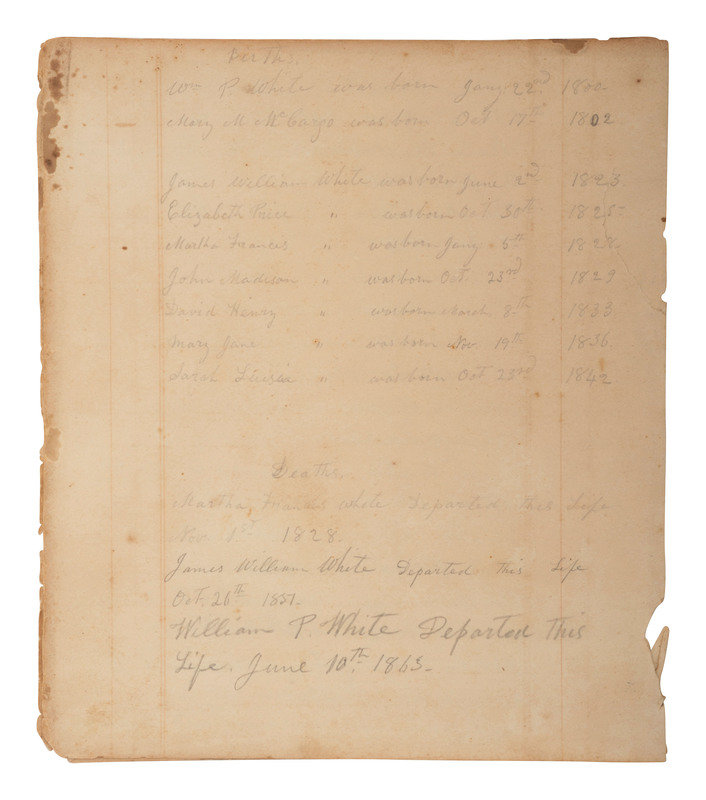 Birth
Wm P. White was born Jany 22nd 1800
Mary M McCargo was born Oct 17th 1802
James William White was born June 2nd 1823
Elizabeth Price " was born Oct 30th 1825
Martha Francis " was born Jany 5th 1828
John Madison " was born Oct. 23rd 1829
David Henry " was born March 8th 1833
Mary Jane " was born Nov. 19th 1836
Sarah Louisa " was born Oct 23rd 1842
Deaths
Martha Francis White Departed this Life
Nov 1st 1828.
James William White Departed this Life
Oct. 26th 1851.
William P. White Departed this
Life June 10th 1865.